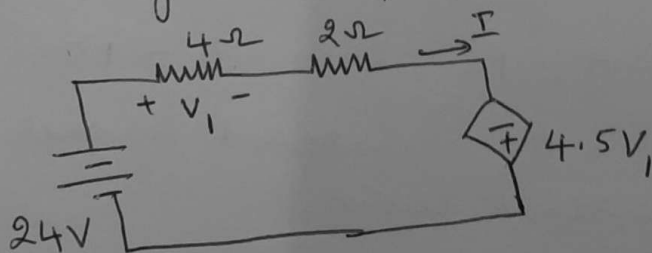 4Ω 2Ω I
+ V₁ −
− + 4.5V₁
24V